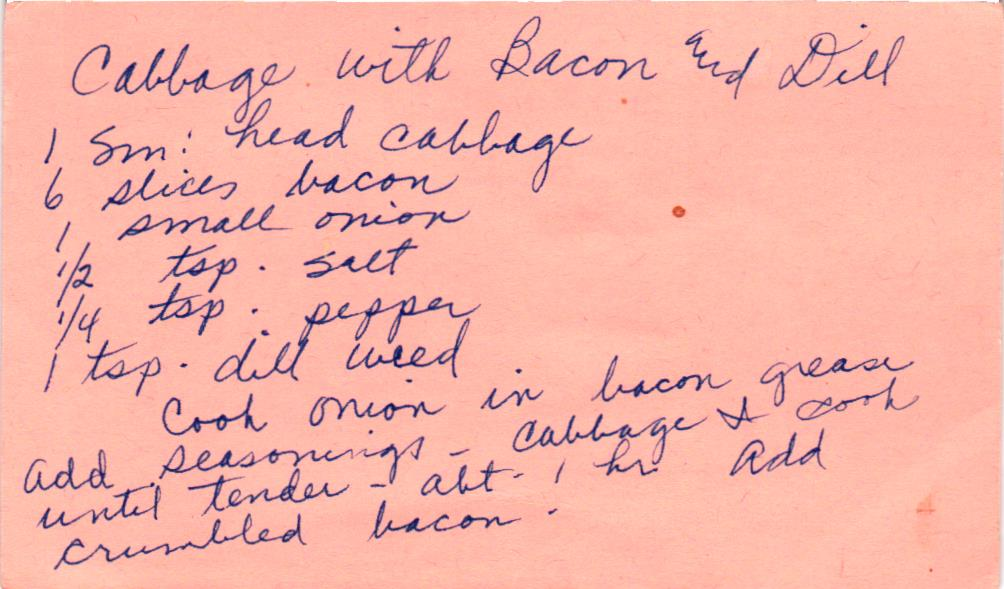 Cabbage with Bacon End Dill
1 Sm: head cabbage
6 slices bacon
1 small onion
1/2 tsp. salt
1/4 tsp. pepper
1 tsp. dill weed
Cook onion in bacon grease
add seasonings - cabbage & cook
until tender - abt. 1 hr. Add
crumbled bacon.